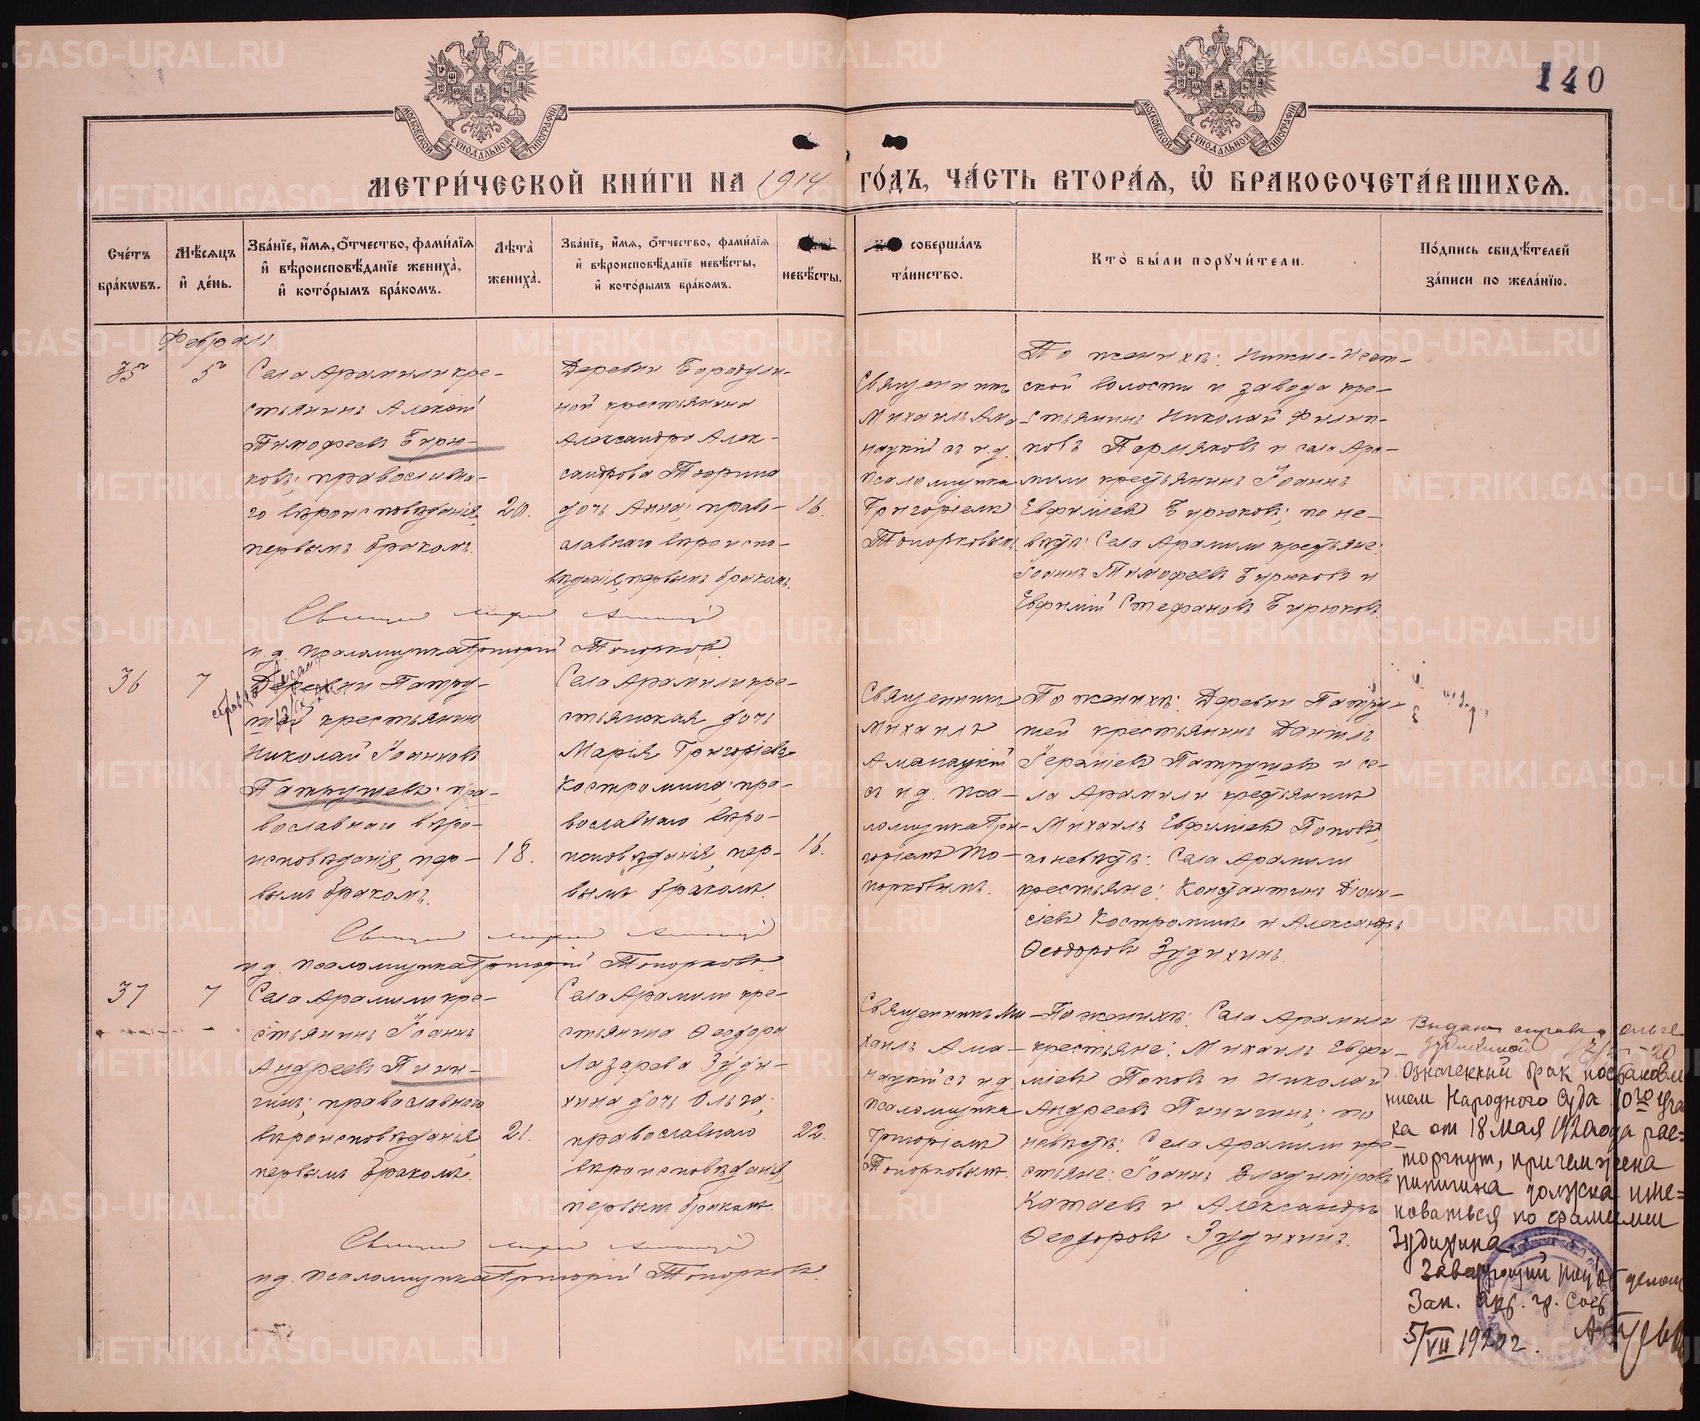 140
МЕТРИ́ЧЕСКОЙ КНИ́ГИ НА 1914 ГО́ДЪ, ЧА́СТЬ ВТОРА́Ѧ, Ѽ БРАКОСОЧЕТА́ВШИХСѦ.
Сче́тъ бра́кѡвъ.
Мѣ́сѧцъ и҆ де́нь.
Зва́нїе, и҆́мѧ, ѻ҆́тчество, фами́лїѧ и҆ вѣроисповѣ́данїе жениха̀, и҆ кото́рымъ бра́комъ.
Лѣта̀ жениха̀.
Зва́нїе, и҆́мѧ, ѻ҆́тчество, фами́лїѧ и҆ вѣроисповѣ́данїе невѣ́сты, и҆ кото́рымъ бра́комъ.
невѣ́сты.
соверша́лъ та́инство.
Кто̀ бы́ли порꙋчи́тели.
По́дпись свидѣ́телей за́писи по жела́нїю.
Февраль
35
5
Села Арамили кре-
стьянинъ Алексѣй
Тимофеевъ Бирю-
ковъ; православна-
го вѣроисповѣданія,
первымъ бракомъ.
20.
Деревни Бородули-
ной крестьянина
Александра Алек-
сандрова
дочь Анна; право-
славнаго вѣроиспо-
вѣданія, первымъ бракомъ.
16.
Священникъ
Михаилъ Ама-
нацкій съ и.д.
псаломщика
Григоріемъ
Топорковымъ
По женихѣ: Нижне-Исет-
ской волости и завода кре-
стьянинъ Николай Филип-
повъ Пермяковъ и села Ара-
мили крестьянинъ Іоаннъ
Евфиміевъ Бирюковъ; по не-
вѣстѣ: Села Арамили крестьяне:
Іоаннъ Тимофеевъ Бирюковъ и
Евфимій Стефановъ Бирюковъ.
и.д. псаломщика Григорій Топорковъ.
36
7
Деревни Патру-
шей крестьянин
Николай Іоанновъ
Патрушевъ; пра-
вославнаго вѣро-
исповѣданія, пер-
вымъ бракомъ.
18.
Села Арамили кре-
стьянская дочь
Марія Григоріева
Костромина; пра-
вославнаго вѣро-
исповѣданія, пер-
вымъ бракомъ.
16.
Священникъ
Михаилъ
Аманацкій
съ и.д. пса-
ломщика Гри-
горіемъ То-
порковымъ.
По женихѣ: Деревни Патру-
шей крестьянинъ Даніилъ
Патрушевъ и се-
ла Арамили крестьянинъ
Михаилъ Евфиміевъ Поповъ;
по невѣстѣ: Села Арамили
крестьяне: Константинъ Діони-
сіевъ Костроминъ и Александръ
Ѳеодоровъ Зудихинъ.
и.д. псаломщика Григорій Топорковъ.
37
7
Села Арамили кре-
стьянинъ Іоаннъ
Андреевъ Пини-
гинъ; православнаго
вѣроисповѣданія,
первымъ бракомъ.
21.
Села Арамили кре-
стьянина Ѳеодора
Лазарева Зуди-
хина дочь Ольга;
православнаго
вѣроисповѣданія
первымъ бракомъ.
22.
Священникъ Ми-
хаилъ Ама-
нацкій съ и.д.
псаломщика
Григоріемъ
Топорковымъ.
По женихѣ: Села Арамили
крестьяне: Михаилъ Евфи-
міевъ Поповъ и Николай
Андреевъ Пинигинъ; по
невѣстѣ: Села Арамили кре-
стьяне: Іоаннъ Владиміровъ
Катаевъ и Александръ
Ѳеодоровъ Зудихинъ.
и.д. псаломщика Григорій Топорковъ.
Выдана справка Ольге
Означенный брак постановле
нием Народного Суда 10го уча
ка от 18 мая 1920 года рас=
торгнут, причем жена
Пинигина должна име=
новаться по фамилии
Зудихина
Заведующий отделом
Зап. акт. гр. сост
5/VII 1920 г.